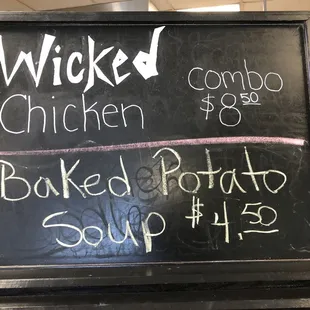 Wicked
Chicken
combo
$8.50
Baked Potato
Soup $4.50